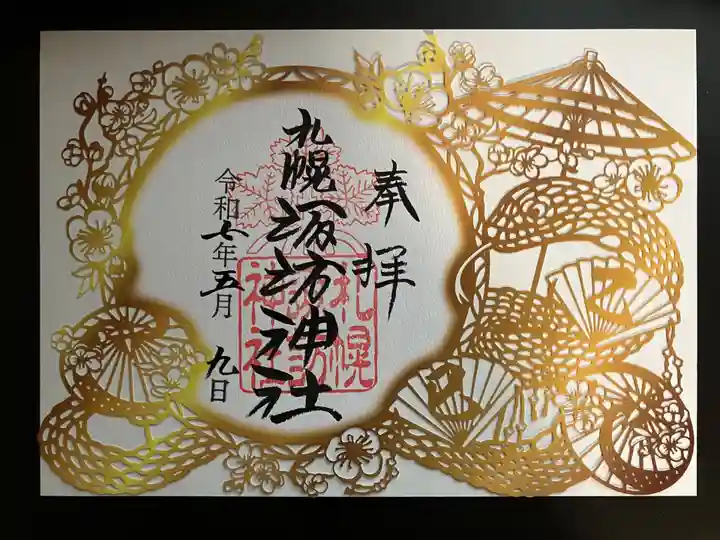 奉拝
札幌諏訪神社
令和七年五月九日
札幌
諏訪
神社